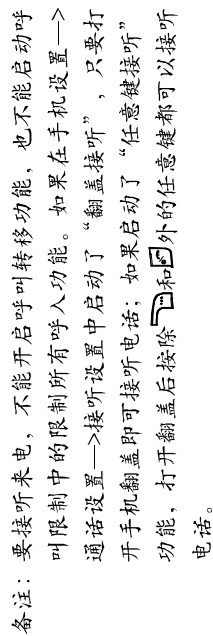 备注：要接听来电，不能开启呼叫转移功能，也不能启动呼
叫限制中的限制所有呼入功能。如果在手机设置—>
通话设置—>接听设置中启动了“翻盖接听”，只要打
开手机翻盖即可接听电话；如果启动了“任意键接听”
功能，打开翻盖后按除和外的任意键都可以接听
电话。